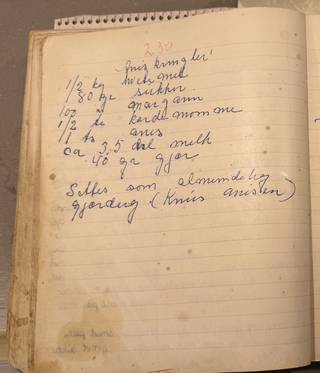 230
kringler
1/2 kg hvetemel
180 gr sukker
100 " margarin
1/2 ts kardemomme
1 ts anis
ca 3,5 dl melk
40 gr gjær
Settes som almindelig
gjærdeig (Knus anisen)